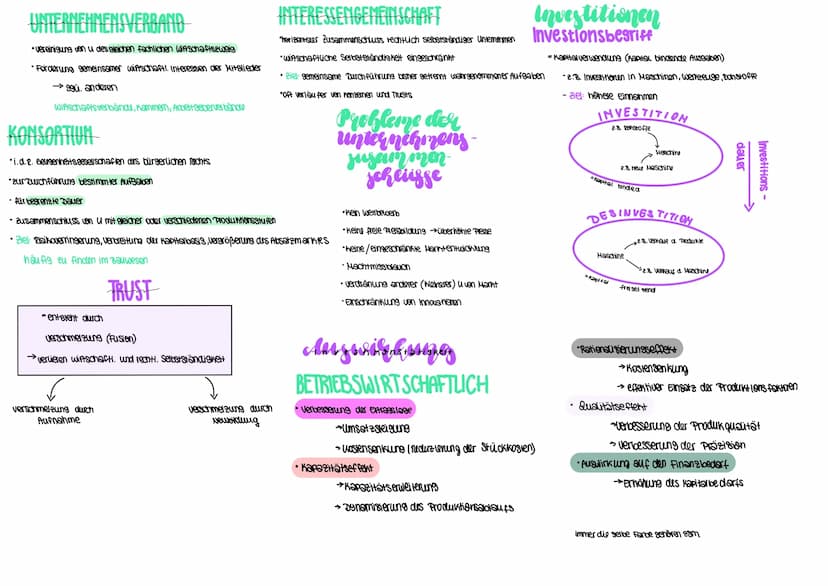 UNTERNEHMENSVERBAND
• Vereinigung von U des gleichen fachlichen Wirtschaftszweig
• Förderung gemeinsamer wirtschaftl. Interessen der Mitglieder
→ ggü. anderen
Wirtschaftsverbände, Kammern, Arbeitgeberverbände
KONSORTIUM
• i.d.R. Gelegenheitsgesellschaften des bürgerlichen Rechts
• zur Durchführung bestimmter Aufgaben
• für begrenzte Dauer
• Zusammenschluss von U mit gleicher oder verschiedenen Produktionsstufen
• Ziel: Risikoverringerung, Verbreitung der Kapitalbasis, Vergrößerung des Absatzmarktes
häufig zu finden im Bauwesen
TRUST
• entsteht durch
Verschmelzung (Fusion)
→ verlieren wirtschaftl. und rechtl. Selbstständigkeit
Verschmelzung durch
Aufnahme
Verschmelzung durch
Neubildung
INTERESSENGEMEINSCHAFT
• horizontaler Zusammenschluss rechtlich selbstständiger Unternehmen
• wirtschaftliche Selbstständigkeit eingeschränkt
• Ziel: gemeinsame Durchführung bisher getrennt wahrgenommener Aufgaben
• oft Vorläufer von Konzernen und Trusts
Probleme der
Unternehmens-
zusammen-
schlüsse
• kein Wettbewerb
• keine freie Preisbildung → überhöhte Preise
• keine/eingeschränkte Marktentwicklung
• Machtmissbrauch
• Verdrängung anderer (kleinerer) U vom Markt
• Einschränkung von Innovationen
Auswirkung
BETRIEBSWIRTSCHAFTLICH
• Verbesserung der Ertragslage
→ Umsatzsteigung
→ Kostensenkung (Reduzierung der Stückkosten)
• Kapazitätseffekt
→ Kapazitätserweiterung
→ Dynamisierung des Produktionsablaufs
Investitionen
Investionsbegriff
• Kapitalverwendung (Kapital bindende Ausgaben)
- z.B. Investitionen in Maschinen, Werkzeuge, Rohstoffe
- Ziel: höhere Einnahmen
INVESTITION
z.B. Rohstoffe
Maschine
z.B. neue Maschine
• Kapital bindend
Investitions-
dauer
DESINVESTITION
z.B. Verkauf d. Produkte
Maschine
z.B. Verkauf d. Maschine
• Kapital
freisetzend
• Rationalisierungseffekt
→ Kostensenkung
→ effektiver Einsatz der Produktionsfaktoren
• Qualitätseffekt
→ Verbesserung der Produkqualität
→ Verbesserung der Präzision
• Auswirkung auf den Finanzbedarf
→ Erhöhung des Kapitalbedarfs
immer die selbe Farbe gehören zsm.